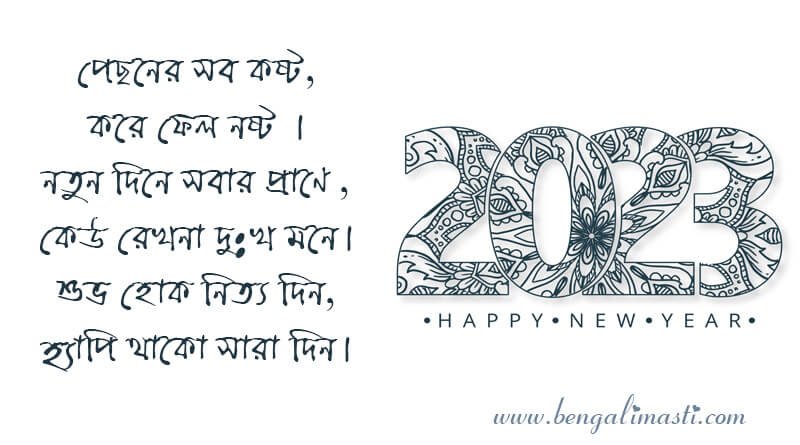 পেছনের সব কষ্ট,
করে ফেল নষ্ট ।
নতুন দিনে সবার প্রাণে,
কেউ রেখনা দুঃখ মনে।
শুভ্র হোক নিত্য দিন,
হ্যাপি থাকো সারা দিন।
2023
•HAPPY•NEW•YEAR•
www.bengalimasti.com